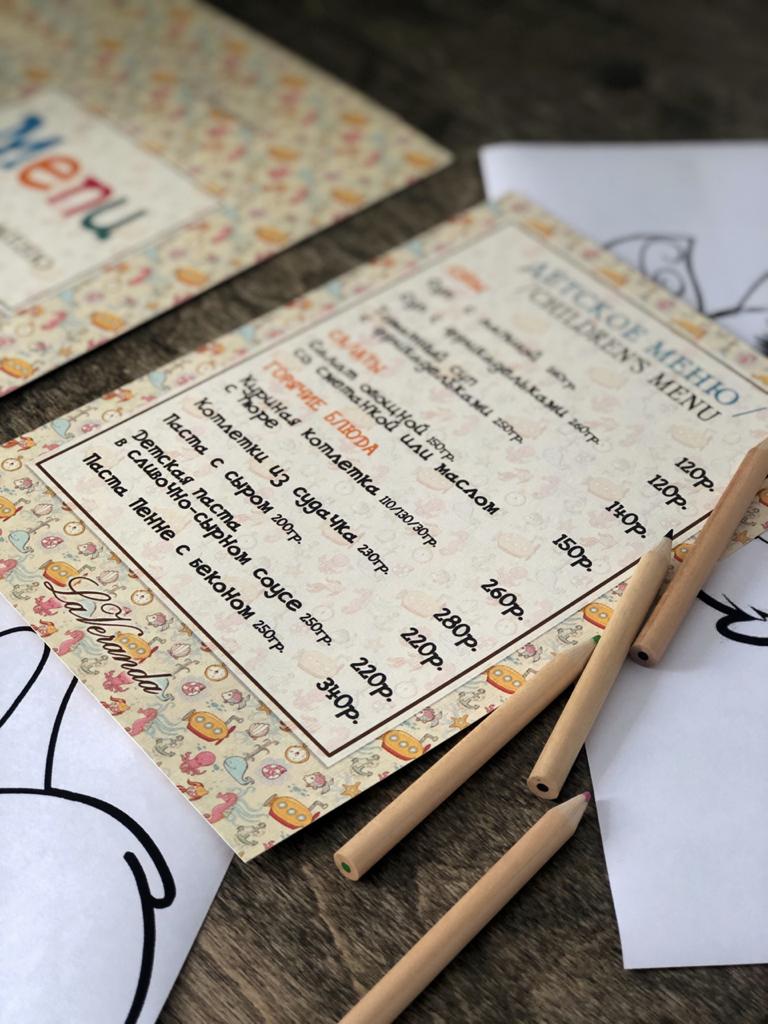 Menu
ДЕТСКОЕ МЕНЮ /
/CHILDREN'S MENU
СУПЫ
Суп с лапшой 120р.
Суп с фрикадельками 120р.
Томатный суп
с фрикадельками 250гр. 140р.
САЛАТЫ
Салат овощной 150гр.
со сметанкой или маслом 150р.
ГОРЯЧИЕ БЛЮДА
Куриная котлетка 110/130/30гр.
с пюре 260р.
Котлетки из судачка 230гр. 280р.
Паста с сыром 200гр. 220р.
Детская паста
в сливочно-сырном соусе 250гр. 220р.
Паста Пенне с беконом 250гр. 340р.
LaVeranda